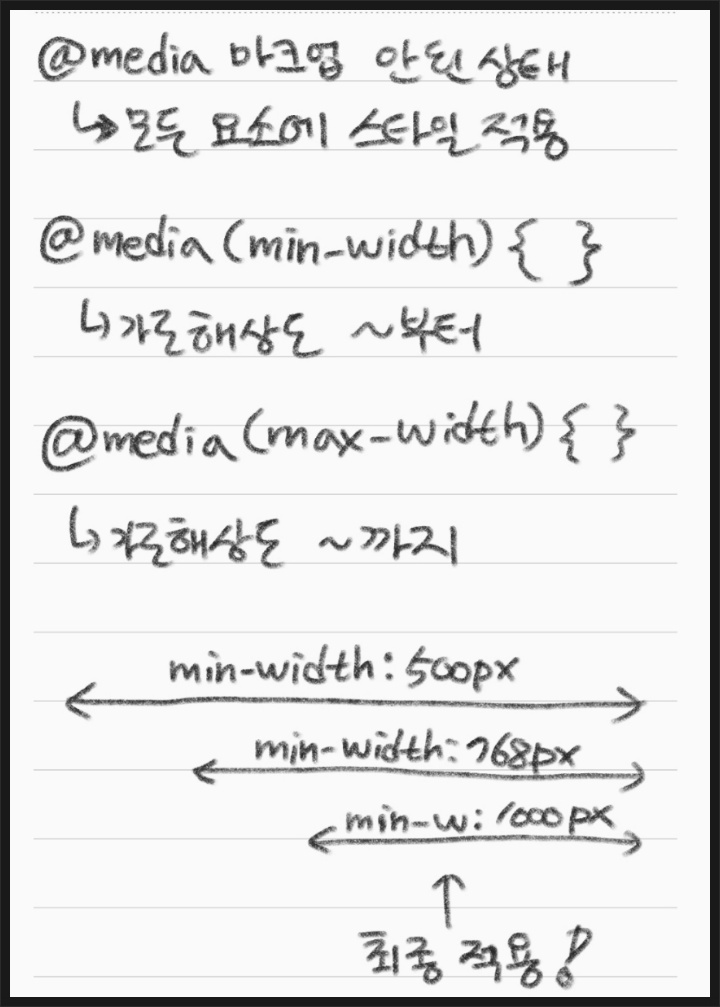 @media 마크업 안된 상태
↳ 모든 요소에 스타일 적용
@media (min-width) { }
↳ 가로해상도 ~부터
@media (max-width) { }
↳ 가로해상도 ~까지
min-width: 500px
min-width: 768px
min-w: 1000px
↑
최종 적용!